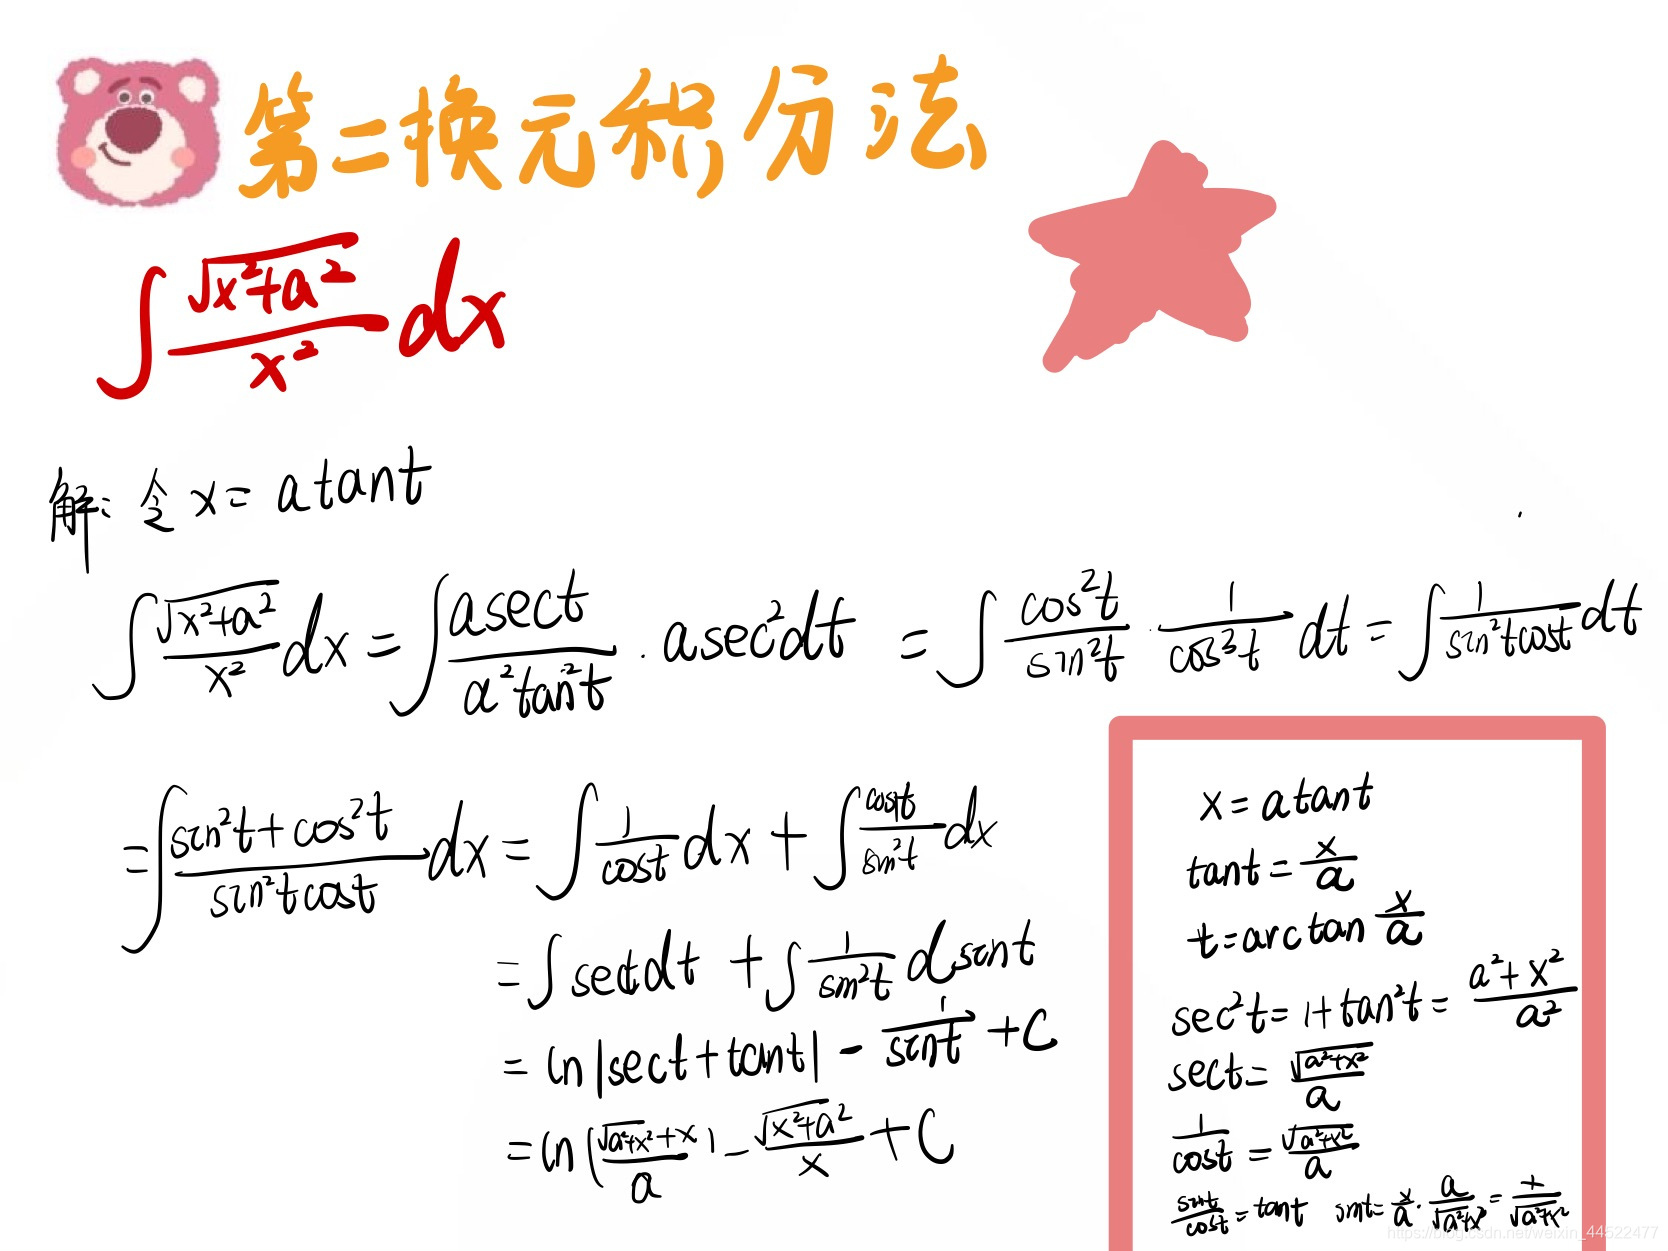 第二换元积分法
∫ √(x²+a²)/x² dx
解:令 x = a tant
∫ √(x²+a²)/x² dx = ∫ asect/(a²tan²t) · asec²dt = ∫ cos²t/sin²t · 1/cos³t dt = ∫ 1/(sin²tcost) dt
= ∫ (sin²t+cos²t)/(sin²tcost) dx = ∫ 1/cost dx + ∫ cost/sin²t dx
= ∫ sectdt + ∫ 1/sin²t dsint
= ln|sect+tant| - 1/sint + C
= ln|(√(a²+x²)+x)/a| - √(x²+a²)/x + C
x = a tant
tant = x/a
t = arctan x/a
sec²t = 1+tan²t = (a²+x²)/a²
sect = √(a²+x²)/a
1/cost = √(a²+x²)/a
sint/cost = tant sint = x/a · a/√(a²+x²) = x/√(a²+x²)
https://blog.csdn.net/weixin_44522477